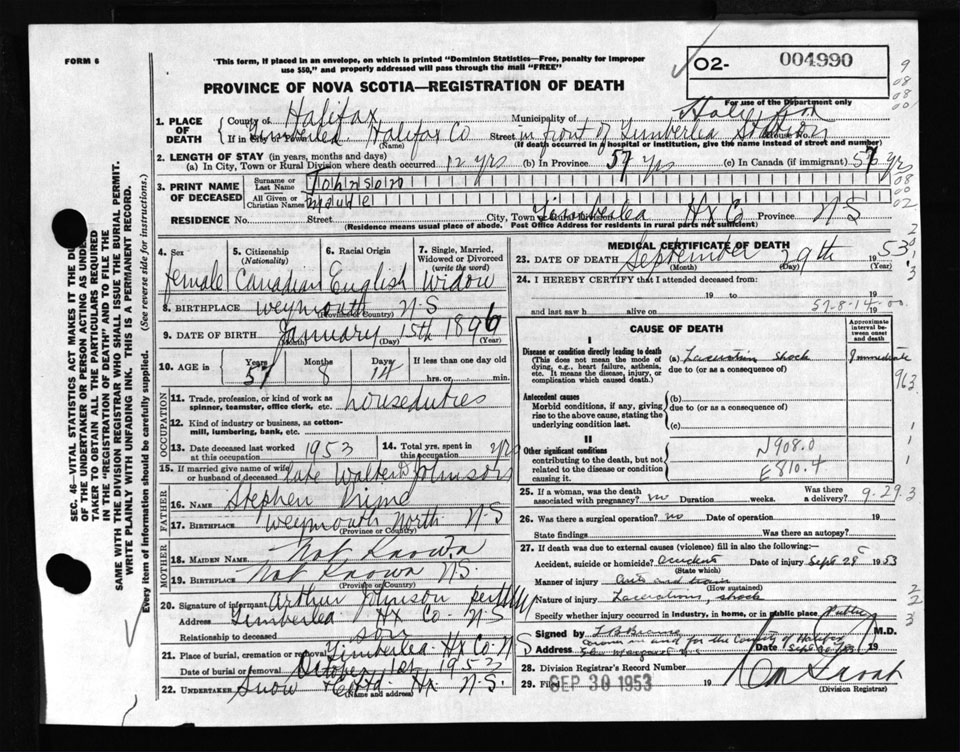 FORM 6
"This form, if placed in an envelope, on which is printed "Dominion Statistics—Free, penalty for improper
use $50," and properly addressed will pass through the mail "FREE"
O2- 004990
For use of the Department only
PROVINCE OF NOVA SCOTIA—REGISTRATION OF DEATH
1. PLACE OF DEATH
County of Halifax
Municipality of Halifax
If in City or Town Timberlea Halifax Co Street in front of Timberlea Station House No.
(Name) (If death occurred in a hospital or institution, give the name instead of street and number)
2. LENGTH OF STAY (in years, months and days)
(a) In City, Town or Rural Division where death occurred 12 yrs (b) In Province 57 yrs (c) In Canada (if immigrant) 57 yrs
3. PRINT NAME OF DECEASED
Surname or Last Name Johnson
All Given or Christian Names
RESIDENCE No. Street City, Town or Rural Division Timberlea Hx Co Province N S
(Residence means usual place of abode. Post Office Address for residents in rural parts not sufficient)
4. Sex female
5. Citizenship (Nationality) Canadian
6. Racial Origin English
7. Single, Married, Widowed or Divorced (write the word) Widow
8. BIRTHPLACE Weymouth N.S
(Province or Country)
9. DATE OF BIRTH January 15th 1896
(Month) (Day) (Year)
10. AGE in Years 57 Months 8 Days 14 If less than one day old
hrs. or min.
OCCUPATION
11. Trade, profession, or kind of work as
spinner, teamster, office clerk, etc. houseduties
12. Kind of industry or business, as cotton-
mill, lumbering, bank, etc.
13. Date deceased last worked at this occupation 1953
14. Total yrs. spent in this occupation
15. If married give name of wife or husband of deceased late Walter D Johnson
FATHER
16. NAME Stephen Prime
17. BIRTHPLACE Weymouth North N.S
(Province or Country)
MOTHER
18. MAIDEN NAME Not Known
19. BIRTHPLACE Not Known N.S.
(Province or Country)
20. Signature of informant Arthur Johnson
Address Timberlea Hx Co. N.S
Relationship to deceased son
21. Place of burial, cremation or removal Timberlea Hx Co. N
Date of burial or removal October 1st 1953
22. UNDERTAKER Snow & Co Ltd Hx N.S.
(Name and address)
MEDICAL CERTIFICATE OF DEATH
23. DATE OF DEATH September 29th 1953
(Month) (Day) (Year)
24. I HEREBY CERTIFY that I attended deceased from:
19 to 19
and last saw h alive on 19
57-8-14-00.
CAUSE OF DEATH
Approximate interval between onset and death
I
Disease or condition directly leading to death
(This does not mean the mode of
dying, e.g., heart failure, asthenia,
etc. It means the disease, injury, or
complication which caused death.)
(a) Laceration shock Immediate
due to (or as a consequence of)
Antecedent causes
Morbid conditions, if any, giving
rise to the above cause, stating the
underlying condition last.
(b)
due to (or as a consequence of)
(c)
II
Other significant conditions
contributing to the death, but not
related to the disease or condition
causing it.
N908.0
E810.4
25. If a woman, was the death associated with pregnancy? no Duration weeks. Was there a delivery?
9.29.3
26. Was there a surgical operation? no Date of operation 19
State findings Was there an autopsy?
27. If death was due to external causes (violence) fill in also the following:
Accident, suicide or homicide? accident Date of injury Sept 29 1953
(State which)
Manner of injury Auto and train
(How sustained)
Nature of injury Lacerations, shock
Specify whether injury occurred in industry, in home, or in public place Public
Signed by M.D.
Coroner in and for the County of Halifax
Address Glen Margaret N.S Date Sept 30 19
28. Division Registrar's Record Number
29. Filed SEP 30 1953 19
(Division Registrar)
SEC. 46—VITAL STATISTICS ACT MAKES IT THE DUTY
OF THE UNDERTAKER OR PERSON ACTING AS UNDER-
TAKER TO OBTAIN ALL THE PARTICULARS REQUIRED
IN THE "REGISTRATION OF DEATH" AND TO FILE THE
SAME WITH THE DIVISION REGISTRAR WHO SHALL ISSUE THE BURIAL PERMIT.
WRITE PLAINLY WITH UNFADING INK. THIS IS A PERMANENT RECORD.
Every item of information should be carefully supplied. (See reverse side for instructions.)